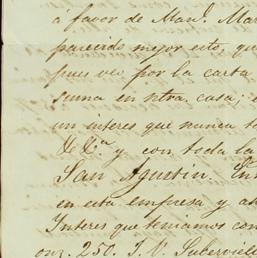 á favor de Man.l Mar
parecido mejor esto, que
pues veo por la carta
suma en ntra. casa; e
un interes que nunca t
de V.a y con toda la
San Agustin. En
en esta empresa y as
Interes que teniamos con
onz. 250. J. V. Subervielle